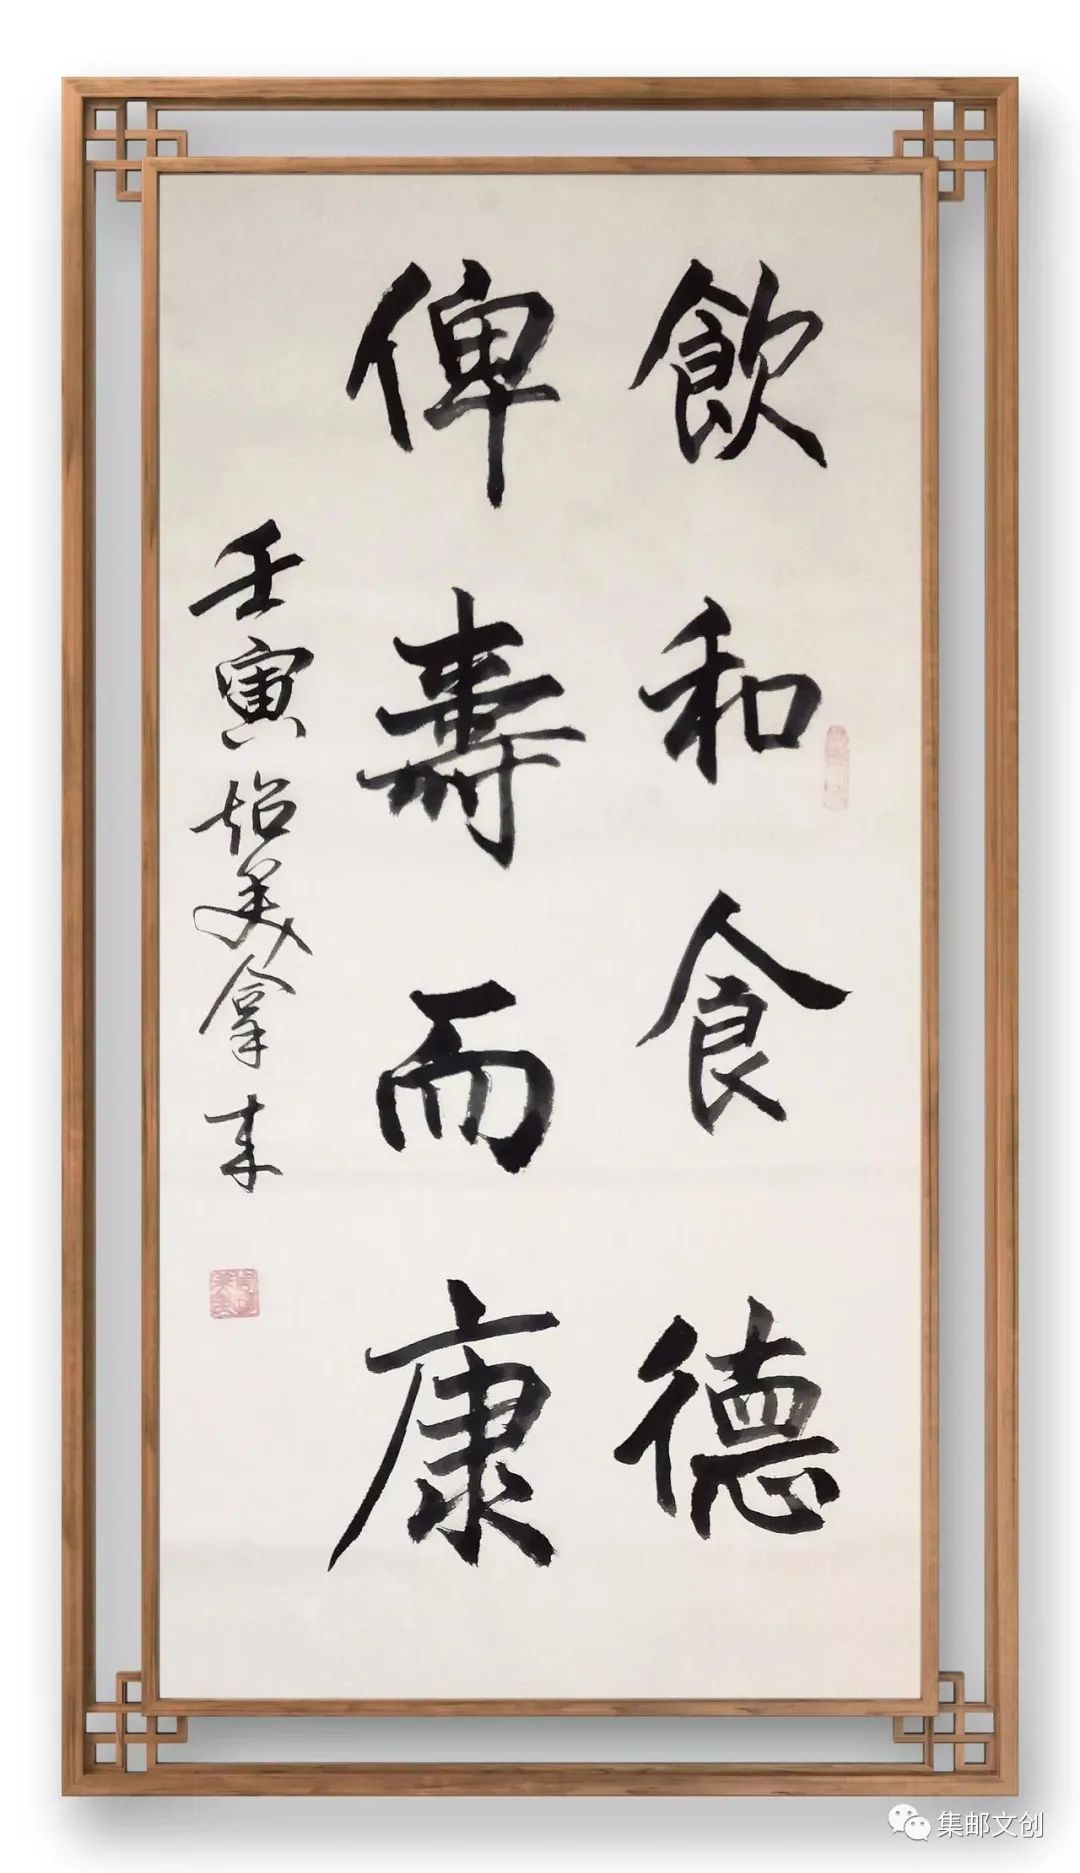 飲和食德
俾壽而康
壬寅 美拿来
集邮文创